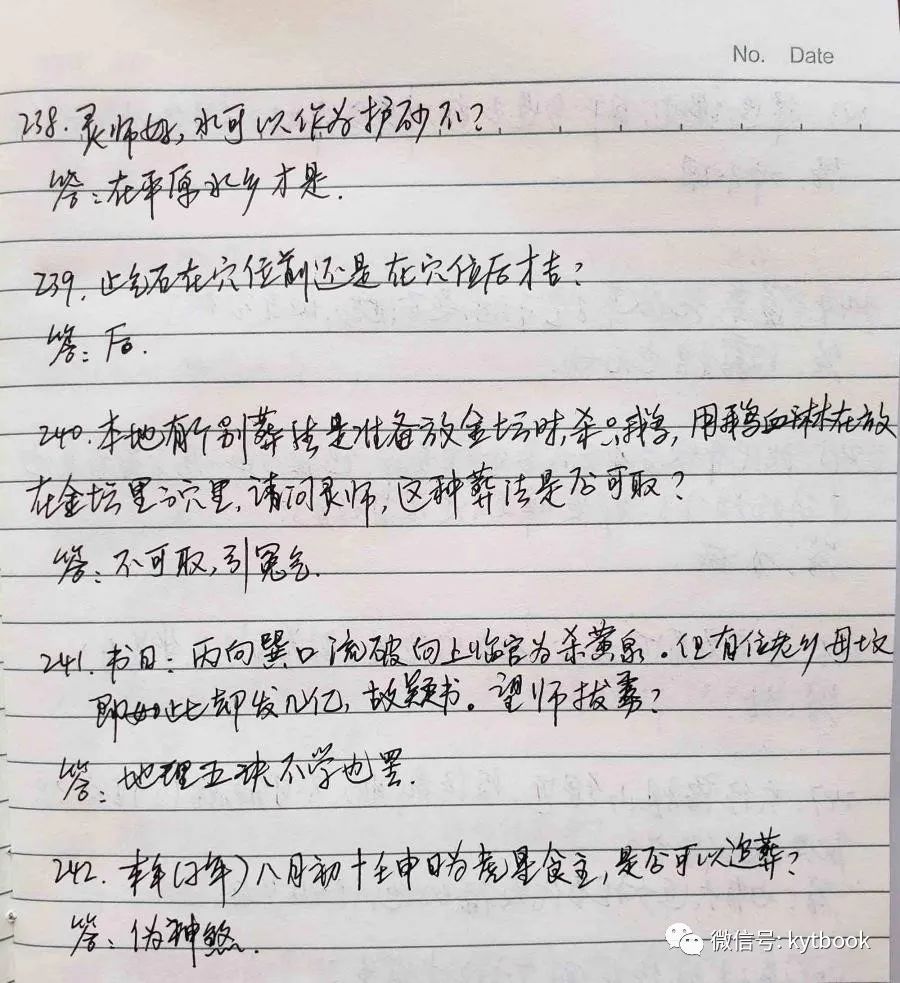 No. Date
238.灵师好,水可以作为护砂不?
答:在平原水乡才是.
239.止气石在穴位前还是在穴位后才吉?
答:后.
240.本地有个别葬法是准备放金坛时,杀只鸡,用鸡血淋在放
在金坛里方穴里,请问灵师,这种葬法是否可取?
答:不可取,引冤气.
241.书曰:丙向巽口流破向上临官为杀黄泉。但有位老乡母坟
即如此却发几亿,故疑书。望师拔毒?
答:地理五诀不学也罢.
242.本年()八月初十壬申日为虎星食主,是否可以迁葬?
答:伪神煞.
微信号: kytbook